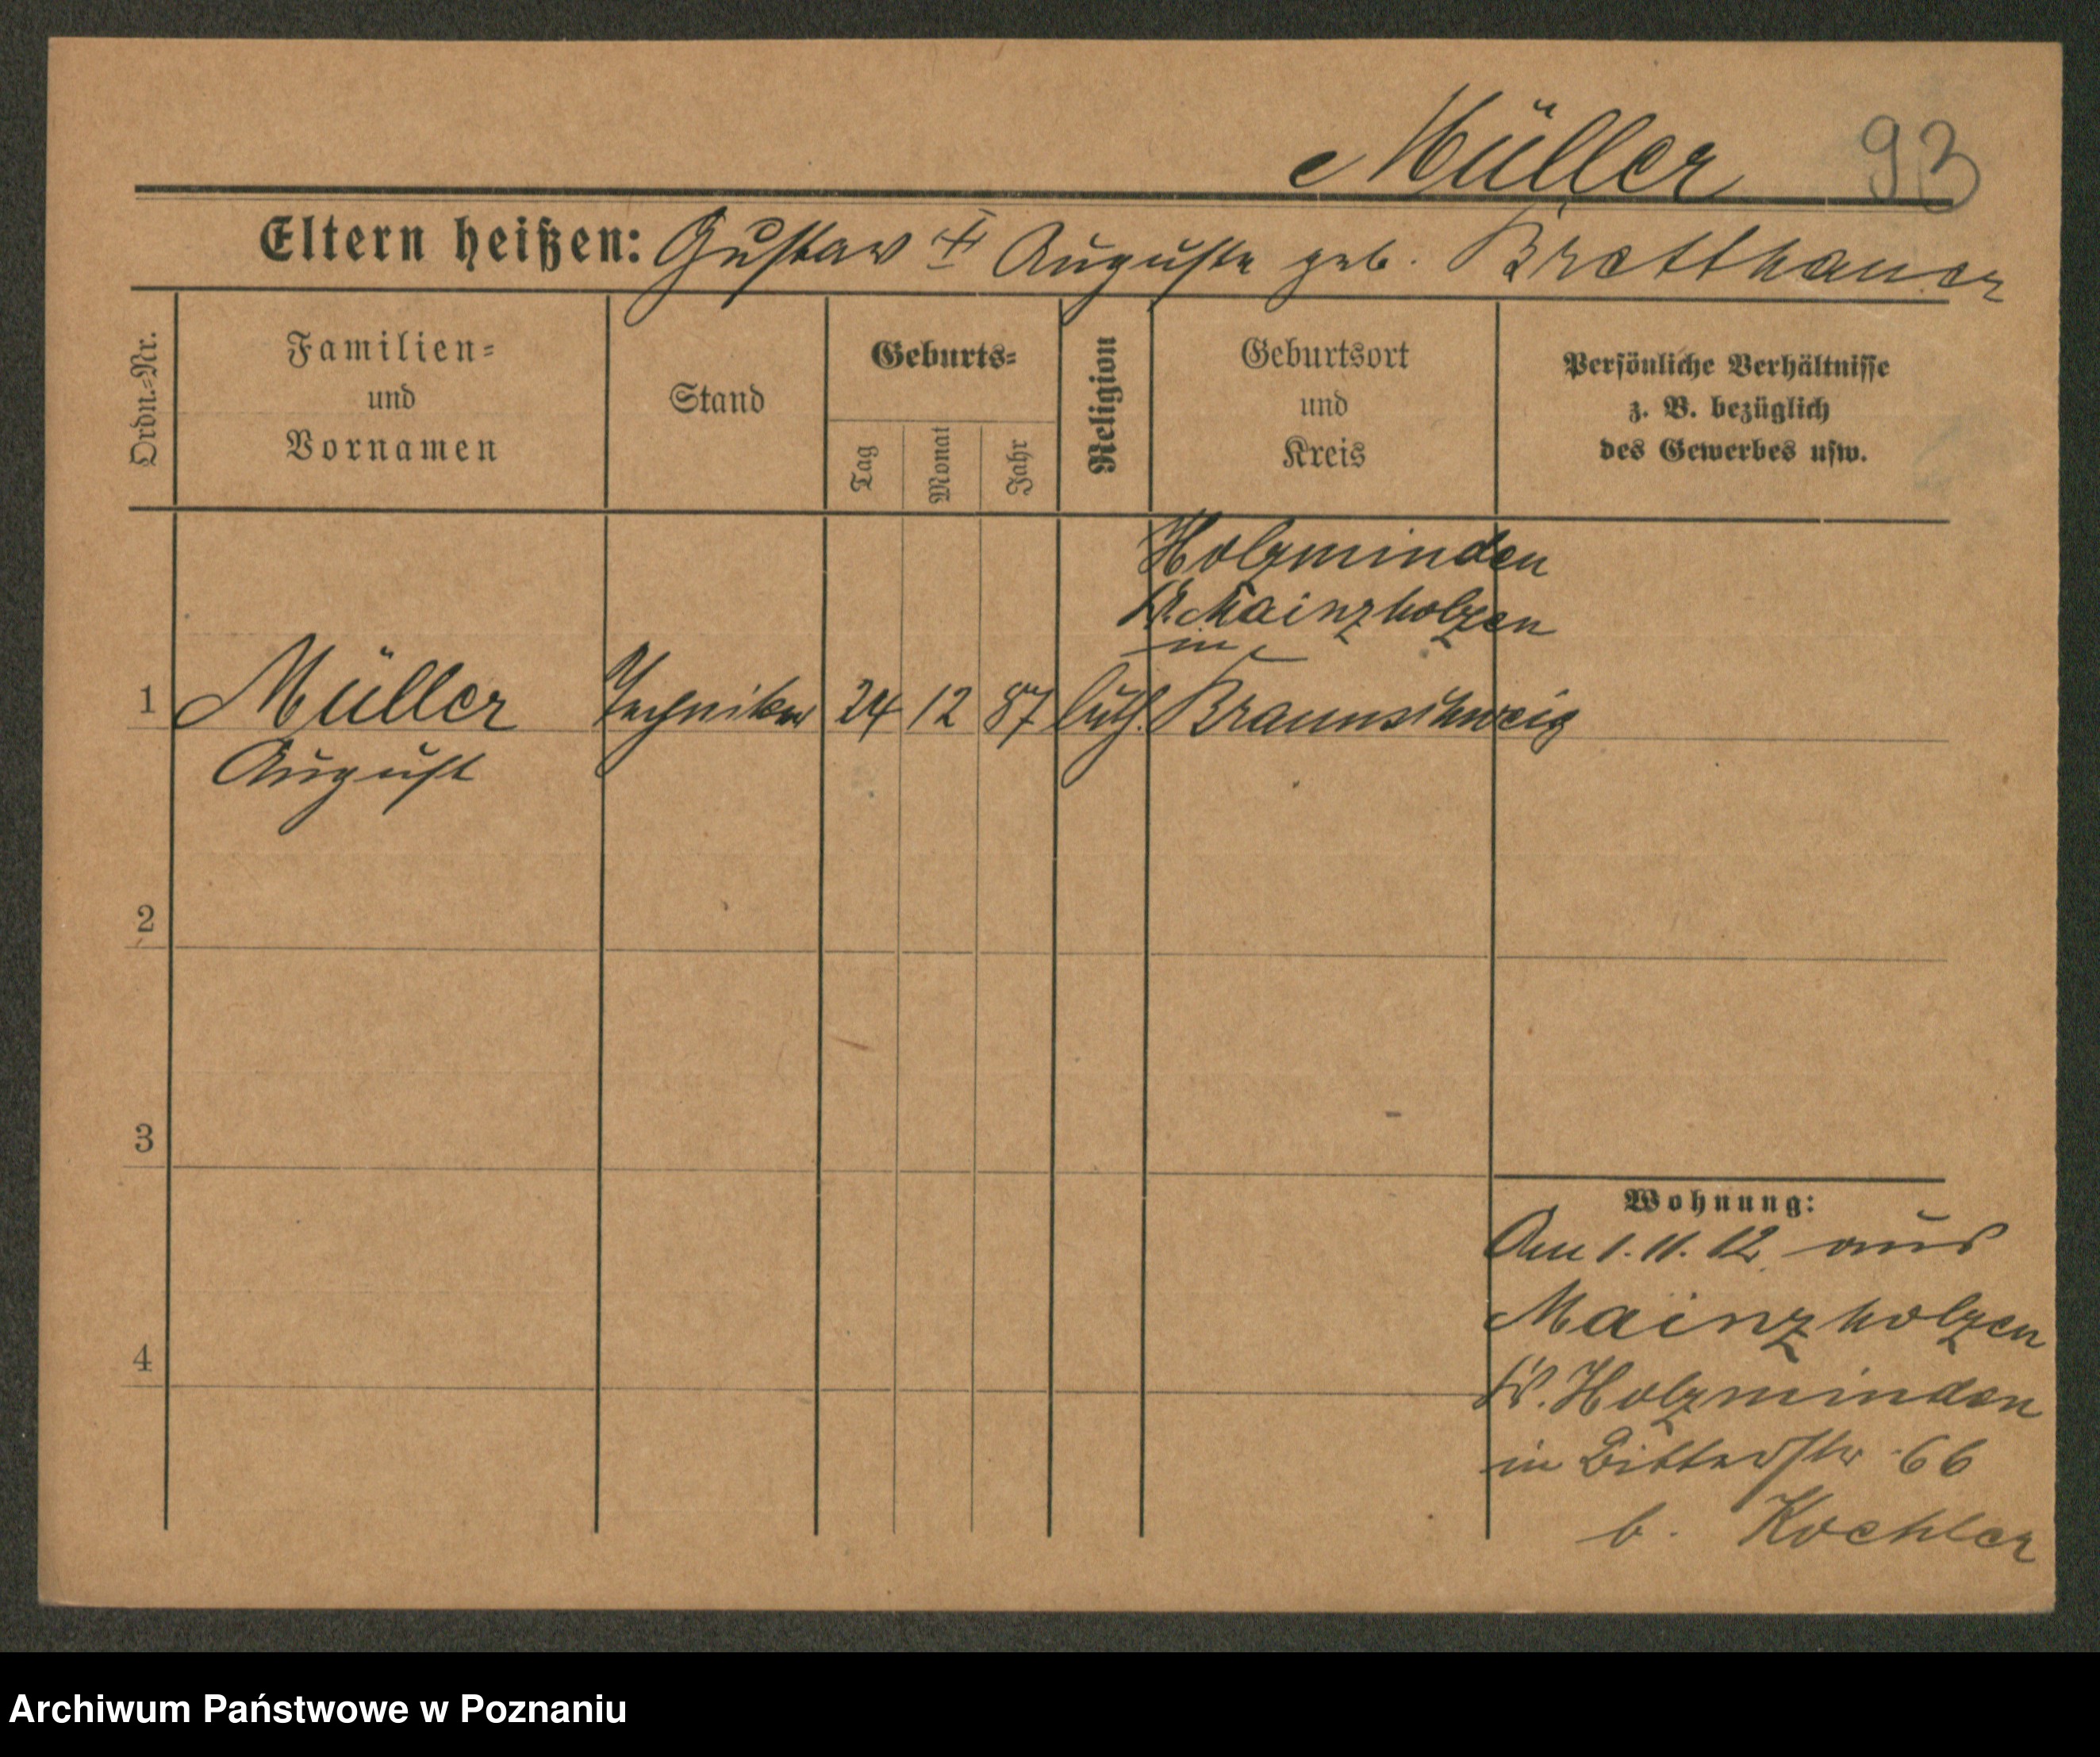 Müller 93
Eltern heißen: Gustav + Auguste geb. Bretthauer
Ordn.-Nr.
Familien-
und
Vornamen
Stand
Geburts-
Tag
Monat
Jahr
Religion
Geburtsort
und
Kreis
Persönliche Verhältnisse
z. B. bezüglich
des Gewerbes usw.
Holzminden
Kr. Mainzholzen
in
1 Müller Techniker 24 12 87 luth. Braunschweig
August
2
3
4
Wohnung:
Am 1. 11. 12 aus
Mainzholzen
Kr. Holzminden
in 66
b. Koehler
Archiwum Państwowe w Poznaniu